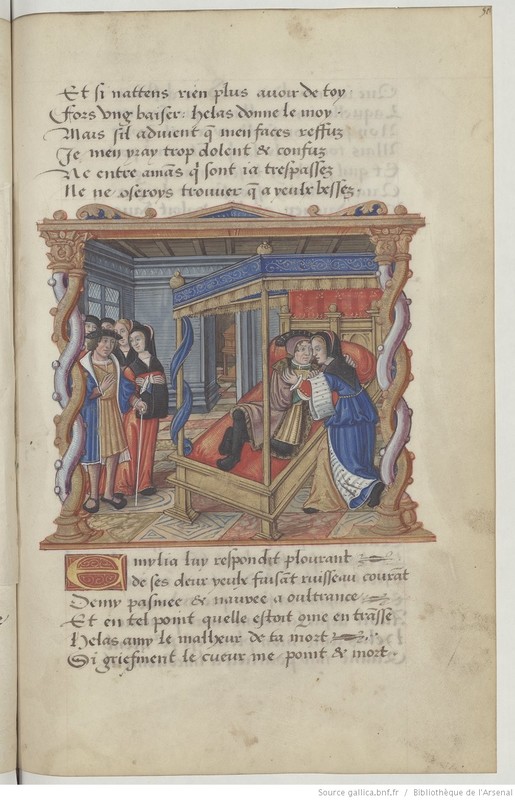 Et si nattens rien plus auoir de toy
Fors vng baiser: helas donne le moy.
Mais sil aduient q̃ men faces reffuz
Je men yray trop dolent & confuz
Ne entre amãs q̃ sont ia trespassez
Ne ne oseroys trouuer q̃ a yeulx bessez.
Emylia luy respondit plourant
de ses deux yeulx faisãt ruisseau courãt
Demy pasmee & nauree a oultrance
Et en tel point quelle estoit cõe en trãsse
Helas amy le malheur de ta mort
Si griefment le cueur me point & mort.
Source gallica.bnf.fr / Bibliothèque de l'Arsenal